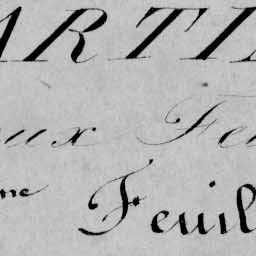 ARTI
aux Fe
me Feuil